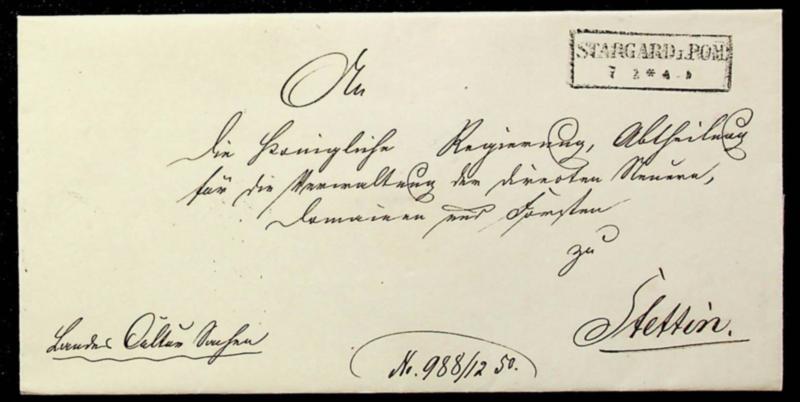 STARGARD i. POM.
7 2 * 4-5
An
die Königliche Regierung, Abtheilung
für die Verwaltung der directen Steuern,
Domainen und Forsten
zu
Stettin.
Landes Cultur Sachen
No. 988/12 50.